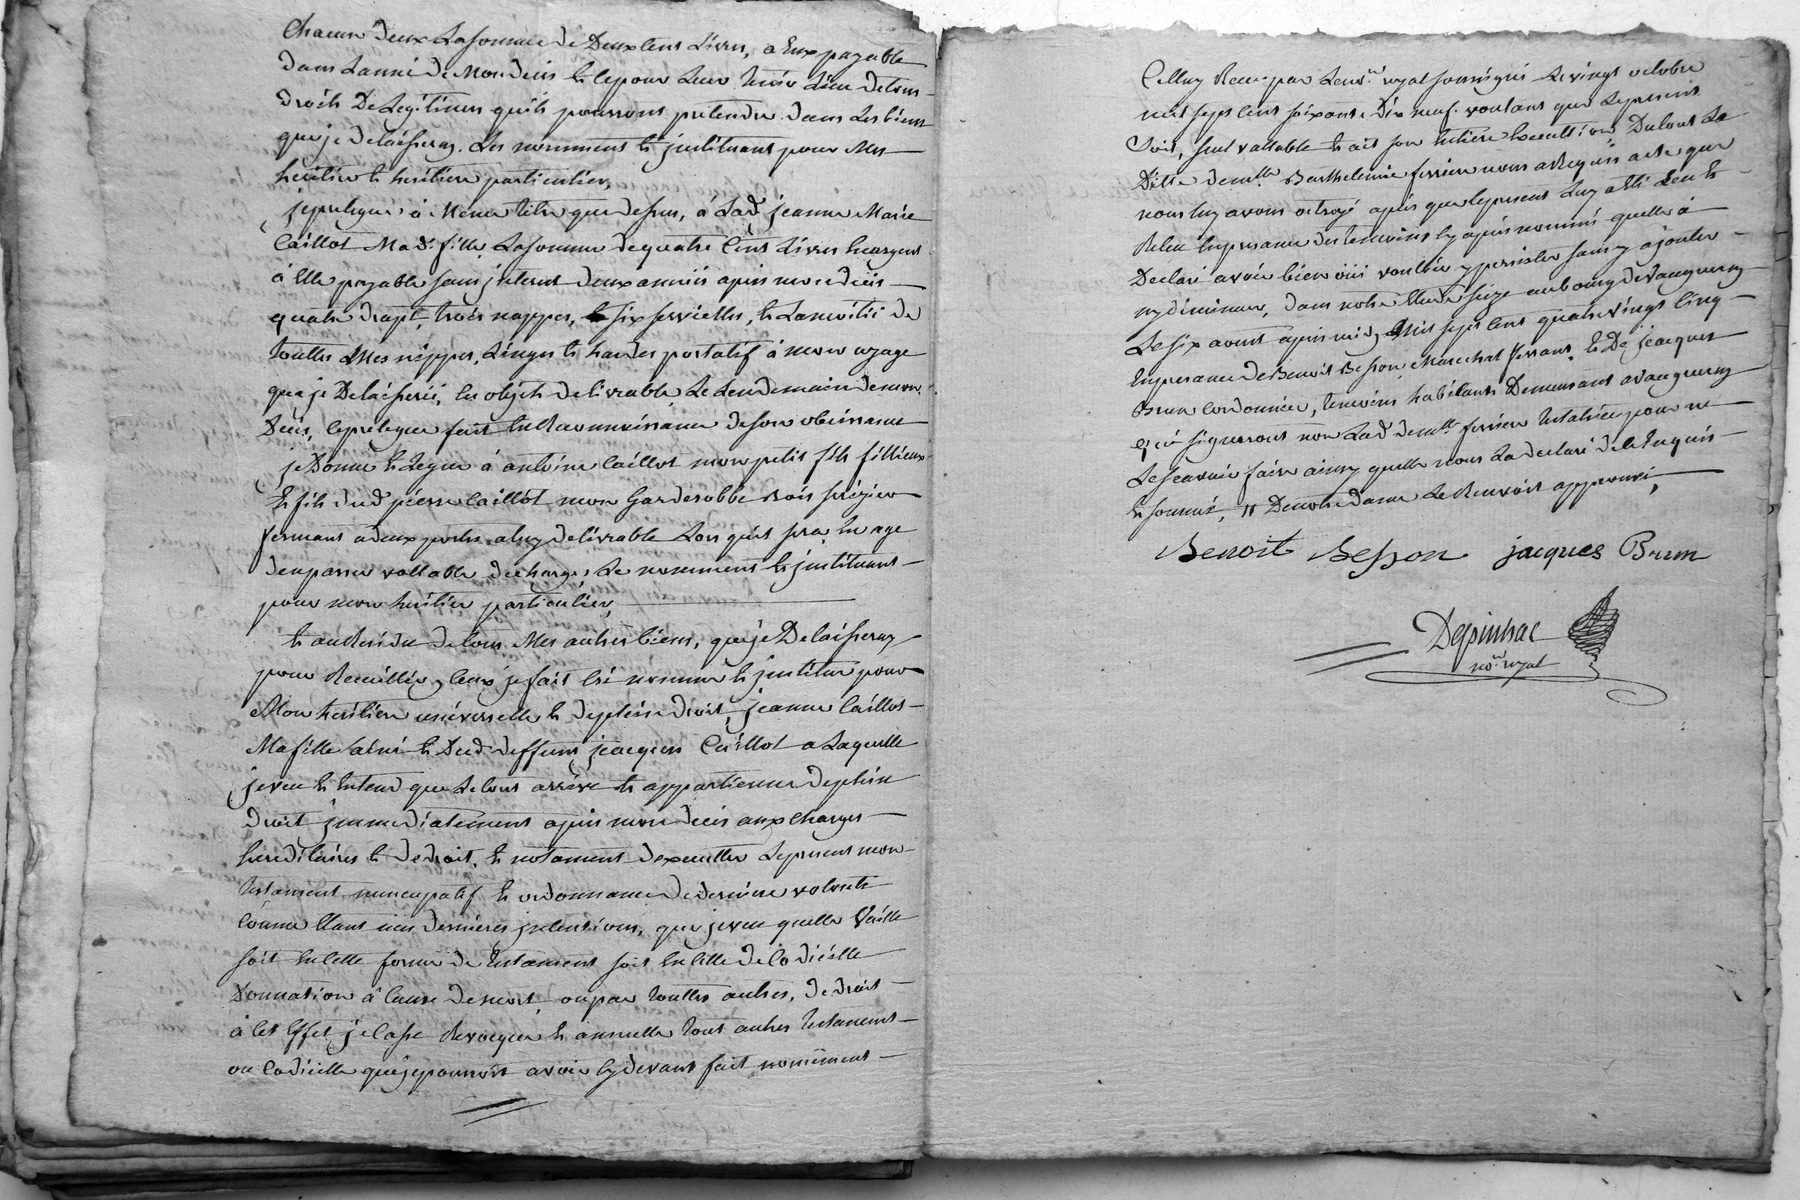 chacun deux La somme de Deux Cens Livres, a Eux payable
dans Lanné de Mon deces Et ce pour Leur tenir Lieu de tous
droits De Legitimes quils pourront pretendre dans Les biens
que je delaisseray, Les nommant Et jnstituant pour Mes
heritier Et heritiere particulier,
je prelegue à Meme titre que dessus, á Lad. jeanne Marie
Caillot Mad. fille La somme de quatre Cens Livres En argent
á Elle payable sans jnterest deux années apres mon deces
quatre drapt, trois nappes, Et six serviettes, Et La moitié de
touttes Mes nippes, Linges Et hardes portatif á mon usage
que je Delaisseré, Ces objets delivrable Le Lendemain de mon
Deces, Ce prelegue fait En Reconnoissance de son obeissance
je Donne Et Legue á antoine Caillot mon petit fils fillieux
Et fils dud. pierre Caillot mon Garderobbe Bois serizier
fermant a deux portes a luy delivrable Lors quil sera En age
den passer vallable decharge, Le nommant Et jnstituant
pour mon heritier particulier,
Et au Residu de tous Mes autres biens, que je Delaisseray
pour Recuillir, Ceux je fait Cré nomme Et jnstitue pour
Mon heritiere universelle Et de plein droit, jeanne Caillot
Ma fille ainé Et Dud. deffunt jacques Caillot a Laquelle
je veu Et Entend que Le tout arrive Et appartienne de plein
droit jmmediatement apres mon deces aux charges
hereditaires Et de droit, Et notament dexecutter Le present mon
testament nuncupatif Et ordonnance de derniere volonté
Comme Etant mes dernieres jntentions, que je veu quelle Vaille
soit En Cette forme de testament soit En Celle de Codicille
Donnation á Cause de mort, ou par touttes autres, de droit
á Cet Effet je Casse Revoque Et annulle tout autres testament
ou Codicille que je pourrois avoir Cy devant fait nomément
Celluy Receu par Le no.re royal soussigné Le vingt octobre
mil sept Cent soixante Dix neuf. voulant que Le present
Soit, seul vallable Et ait son Entiere Executtion Du tout La
Ditte dem.lle Barthelemie ferriere nous a Requis acte que
nous luy avons octroyé apres que Le present Luy a Eté Leu Et
Releu En presence des temoins Cy apres nommé quelle á
Declaré avoir bien oüi voulloir y persister sans y ajouter
ny diminuer, dans notre Etude size au bourg de vaugneray
Le six avout apres midy Mil sept Cent quatre vingt Cinq
En presence de Benoit Besson, Marechal ferrant, Et De jacques
Brun Cordonnier, temoins habitants Demeurant a vaugneray
qui signeront non Lad. dem.lle ferriere testatrice pour ne
Le scavoir faire ainsy quelle nous La declaré de ce Enquis
Et sommé,
Benoit Besson jacques Brun
Despinhac
no.re royal